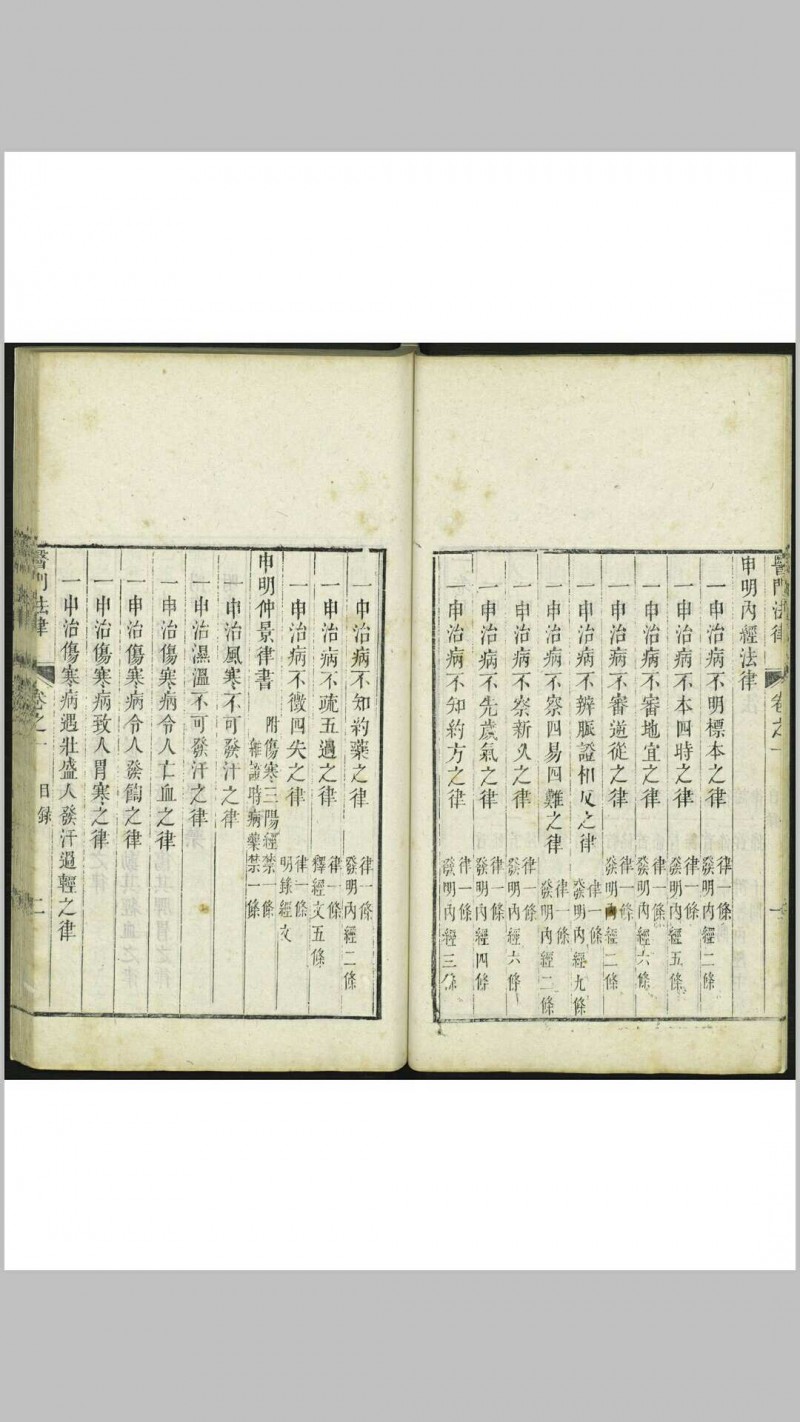 醫門法律 卷之一 一
申明內經法律
一申治病不明標本之律 律一條 發明內經二條
一申治病不本四時之律 律一條 發明內經五條
一申治病不審地宜之律 律一條 發明內經六條
一申治病不審逆從之律 律一條 發明內經二條
一申治病不辨脈證相反之律 律一條 發明內經九條
一申治病不察四易四難之律 律一條 發明內經二條
一申治病不察新久之律 律一條 發明內經六條
一申治病不先歲氣之律 律一條 發明內經四條
一申治病不知約方之律 律一條 發明內經三條
一申治病不知約藥之律 律一條 發明內經二條
一申治病不疏五過之律 律一條 釋經文五條
一申治病不徵四失之律 律一條 明錄經文
申明仲景律書 附傷寒三陽經禁一條 雜證時病藥禁一條
一申治風寒不可發汗之律
一申治濕溫不可發汗之律
一申治傷寒病令人亡血之律
一申治傷寒病令人發𩟇之律
一申治傷寒病致人胃寒之律
一申治傷寒病遇壯盛人發汗過輕之律
醫門法律 卷之一 目錄 二